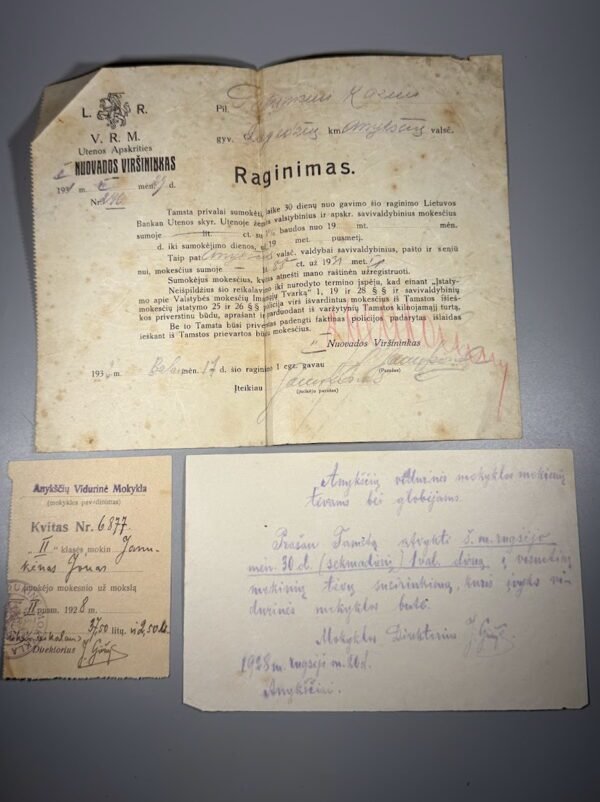 L. R.
V. R. M.
Utenos Apskrities
NUOVADOS VIRŠININKAS
193 m. mėn. d.
Nr.
Pil.
gyv. km. Anykščių valsč.
Raginimas.
Tamsta privalai sumokėti, laike 30 dienų nuo gavimo šio raginimo Lietuvos
Bankan Utenos skyr. Utenoje žemės valstybinius ir apskr. savivaldybinius mokesčius
sumoje lit. ct. su 1% baudos nuo 19 mt. mėn.
d. iki sumokėjimo dienos, už 19 met. pusmetį.
Taip pat Anykščių valsč. valdybai savivaldybinius, pašto ir šeniū
nui, mokesčius sumoje ct. už 19 met.
Sumokėjus mokesčius, kvitą atnešti mano raštinėn užregistruoti.
Neišpildžius šio reikalavimo iki nurodyto termino įspėju, kad einant „Įstaty-
mo apie Valstybės mokesčių Imamąją Tvarką" 1, 19 ir 28 §§ ir savivaldybinių
mokesčių įstatymo 25 ir 26 §§ policija virš išvardintus mokesčius iš Tamstos išieš-
kos priverstinu būdu, aprašant ir parduodant iš varžytinių Tamstos kilnojamąjį turtą,
Be to Tamsta būsi priverstas padengti faktinas policijos padarytas išlaidas
ieškant iš Tamstos prievartos būdu mokesčius.
Nuovados Viršininkas
(Parašas)
193 m. mėn. 17 d. šio raginimo 1 egz. gavau
Įteikiau
Anykščių Vidurinė Mokykla
(mokyklos pavadinimas)
Kvitas Nr. 6877.
„II" klasės mokin
Jonas
mokėjo mokesnio už mokslą
II pusm. 1928 m.
37,50 litų.
Direktorius
Anykščių vidurinės mokyklos mokinių
tėvams bei globėjams.
Prašau Tamstą atvykti š. m. rugsėjo
mėn. 30 d. (sekmadienį) 1 val. dieną į
mokinių tėvų susirinkimą, kuris įvyks vi-
durinės mokyklos bute.
Mokyklos Direktorius
1928 m. rugsėjo m. 20 d.
Anykščiai.